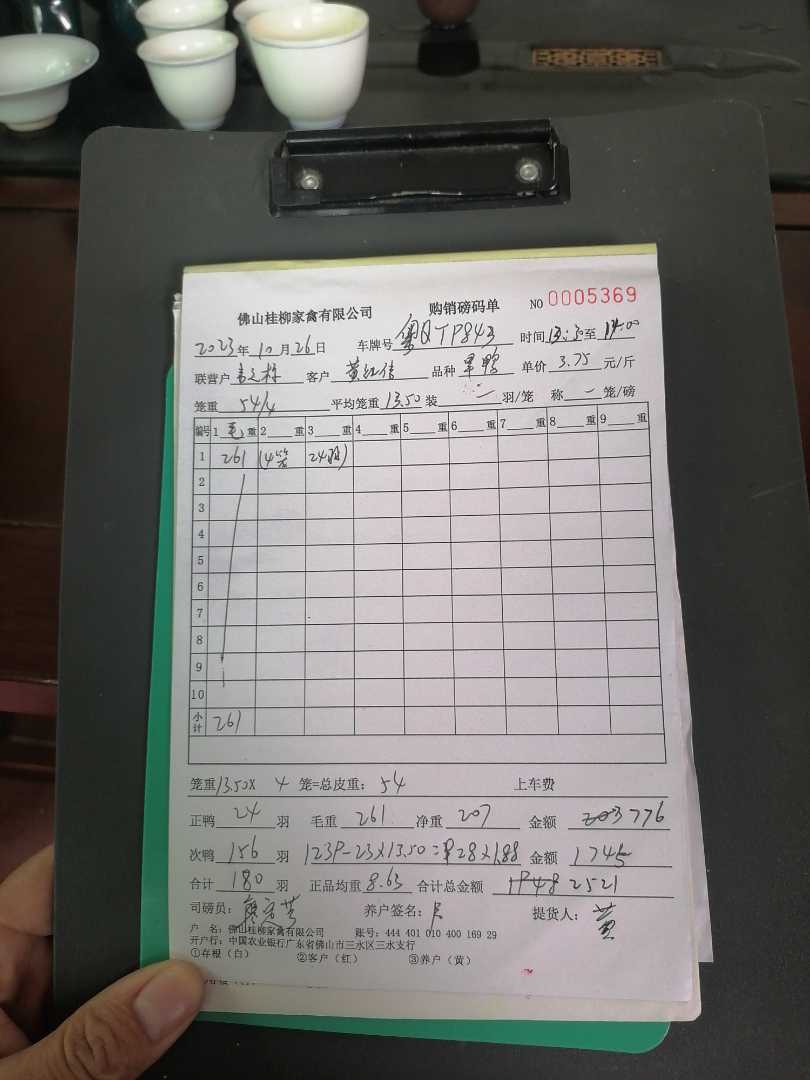 佛山桂柳家禽有限公司 购销磅码单 NO 0005369
2023年10月26日 车牌号 粤QTP843 时间 至 14:00
联营户 客户 黄红信 品种 单价 3.75 元/斤
笼重 54/4 平均笼重 13.50 装 一 羽/笼 称 一 笼/磅
编号 1 毛 重 2 重 3 重 4 重 5 重 6 重 7 重 8 重 9 重
1 261 (4笼 24羽)
2
3
4
5
6
7
8
9
10
小计 261
笼重 13.50X 4 笼=总皮重: 54 上车费
正鸭 24 羽 毛重 261 净重 207 金额 776
次鸭 156 羽 金额 1745
合计 180 羽 正品均重 8.63 合计总金额 2521
司磅员: 养户签名: 提货人: 黄
户 名: 佛山桂柳家禽有限公司 账号: 444 401 010 400 169 29
开户行: 中国农业银行广东省佛山市三水区三水支行
①存根(白) ②客户(红) ③养户(黄)